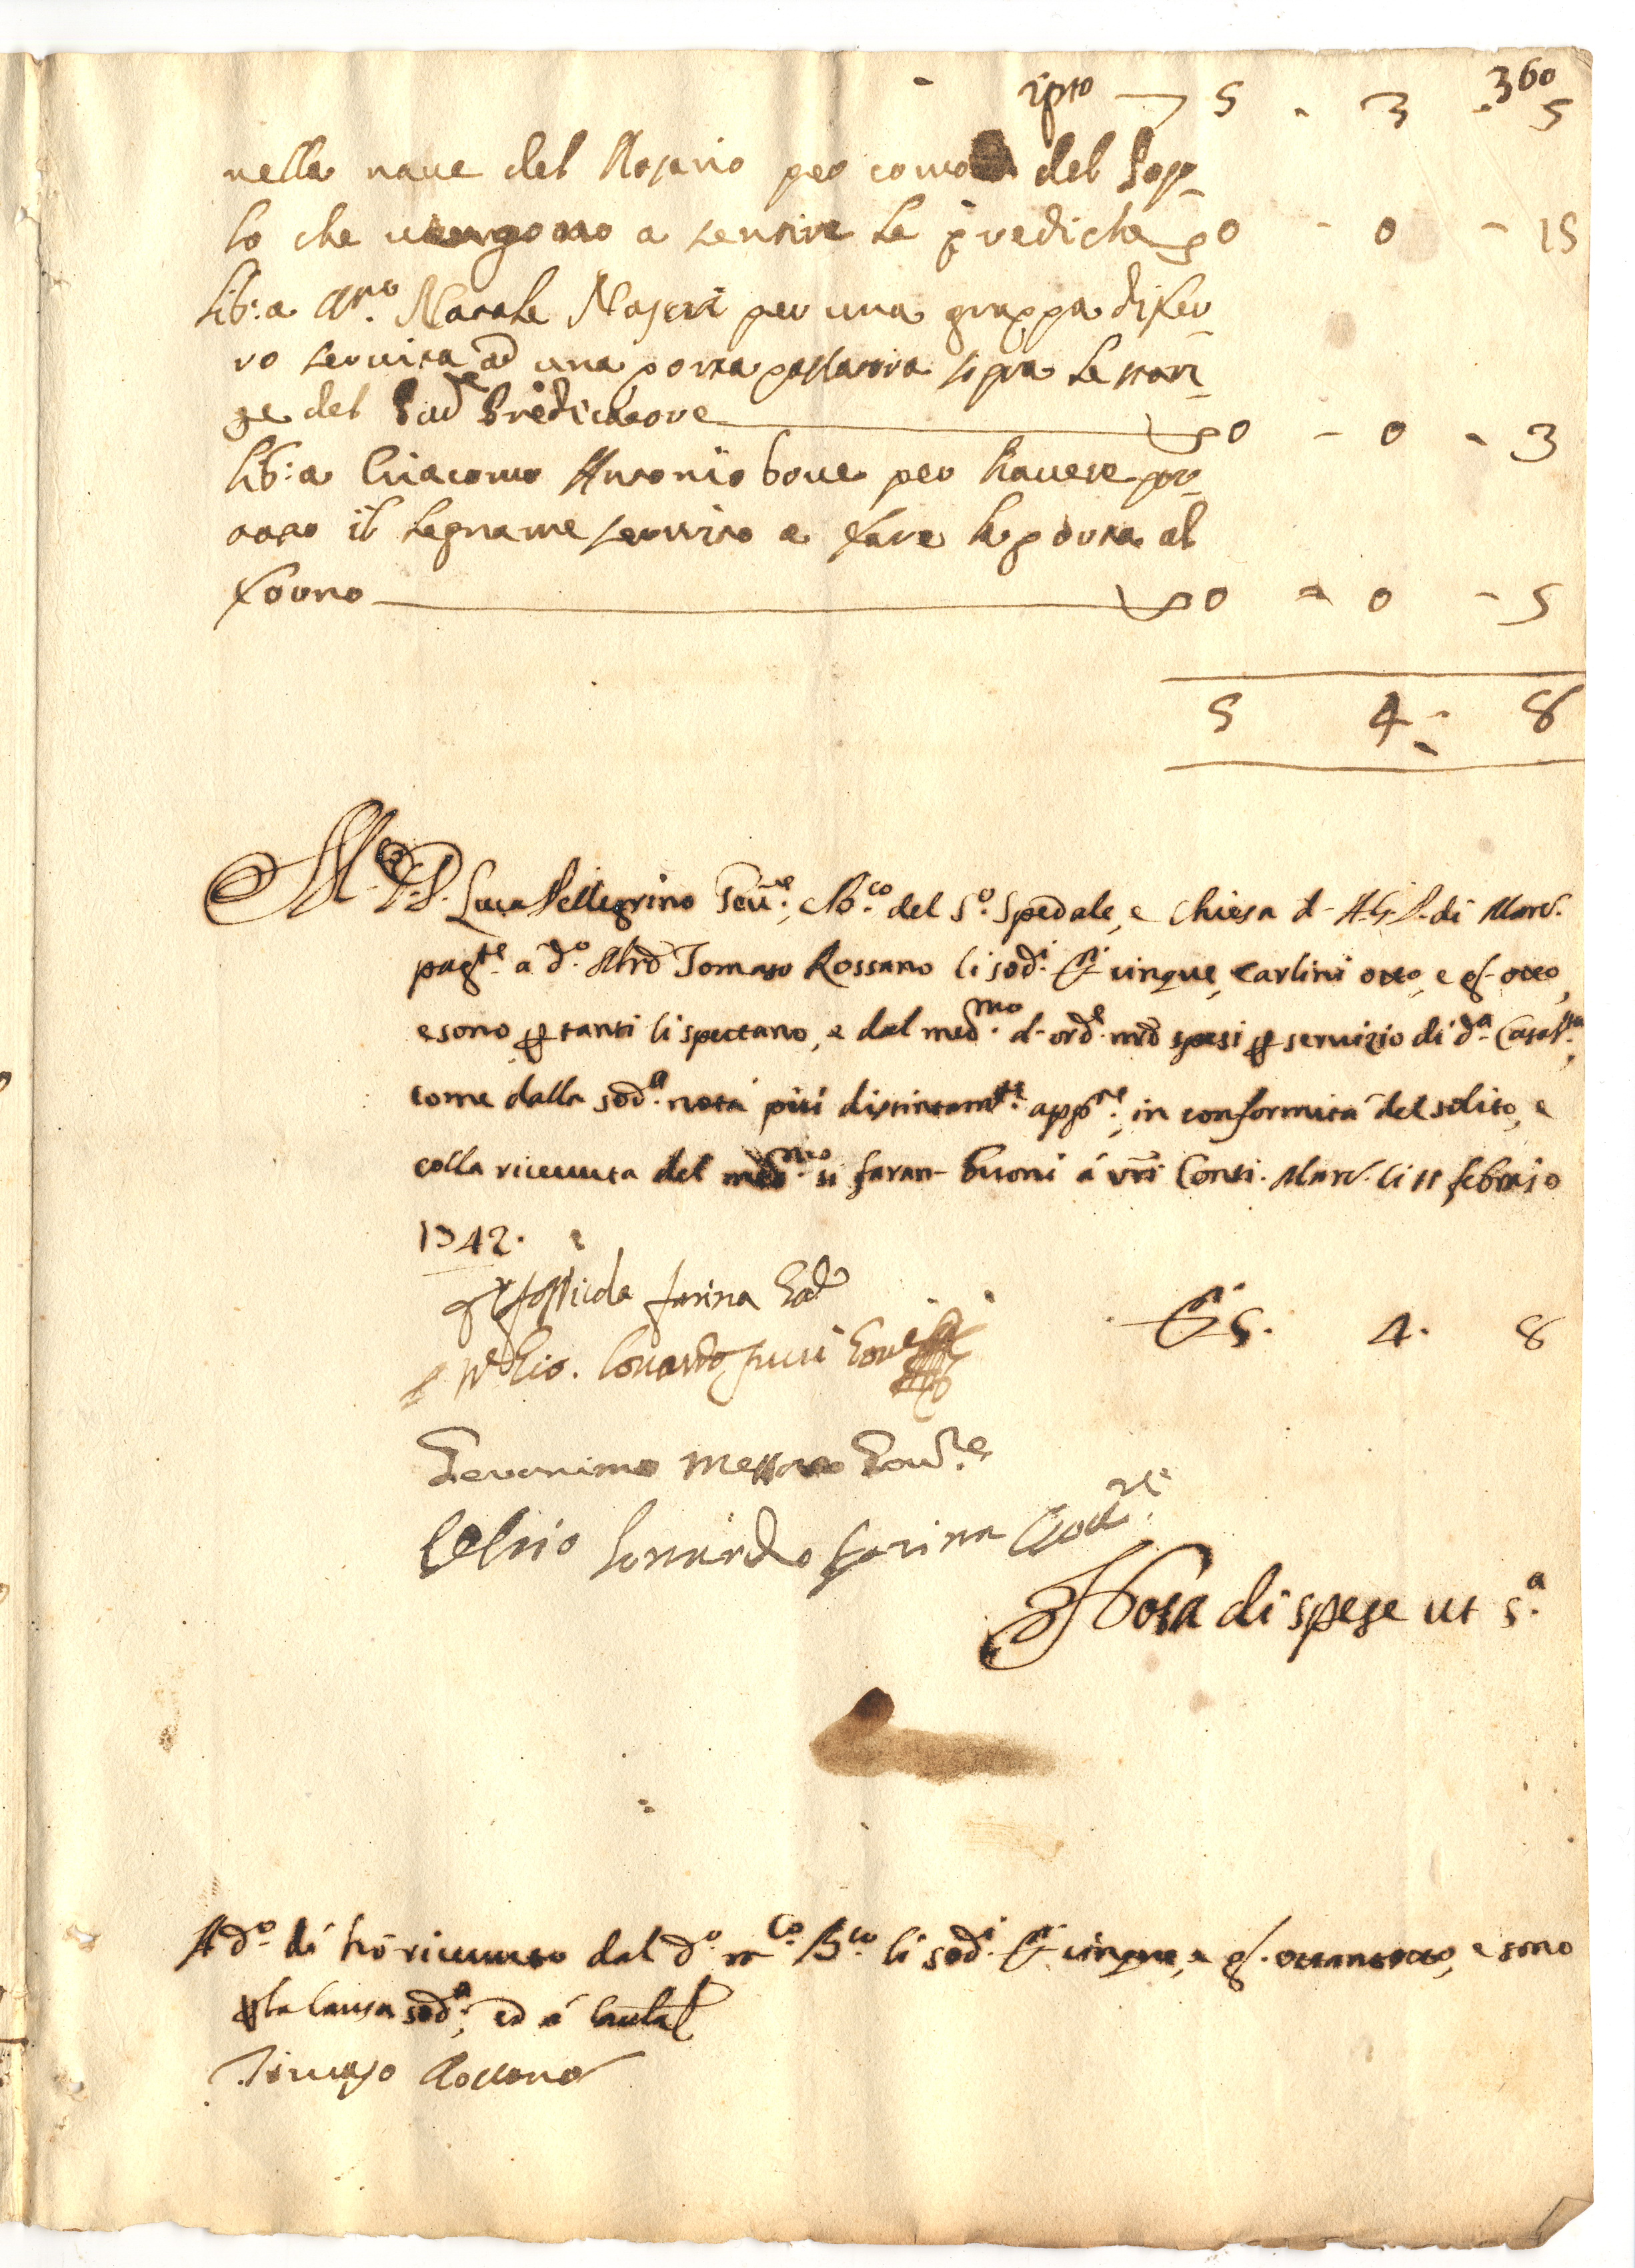 360
rpto — 5 - 3 - 5
nella naue del Rosario per como del Popo-
lo che uengono a sentire le prediche 0 - 0 - 15
lib: a m.ro Natale per una grappa di fer-
ro seruita ad una porta sopra le stan-
ze del Pad.e Predicatore 0 - 0 - 3
lib: a Giacomo Antonio boue per hauere por-
tato il legname seruito a fare la porta al
forno 0 - 0 - 5
5 4 - 8
Luca Pellegrino del S.o Spedale, e Chiesa d. A.G.P. di Marc.
pag.te a d.o Tomaso Rossano li sod.i cinque, Carlini otto, e g. otto,
e sono p tanti li spettano, e dal med.mo d. ord.e spesi p seruizio di d.a Casa
come dalla sod.a nota più distintam.te app.re, in conformità del solito, e
colla riceuuta del med.mo si faran buoni á vri Conti. Marc. li 11 febraio
1742.
farina
5. 4. 8
Gio. Lonardo
Geronimo Messore Gou.re
Lonardo farina Gou.re
Nota di spese ut s.a
A d.o dì hò riceuuto dal d.o m.co li sod.i cinque, e g. ottantotto, e sono
p la causa sod.a, ed á cautela
Tomaso Rossano